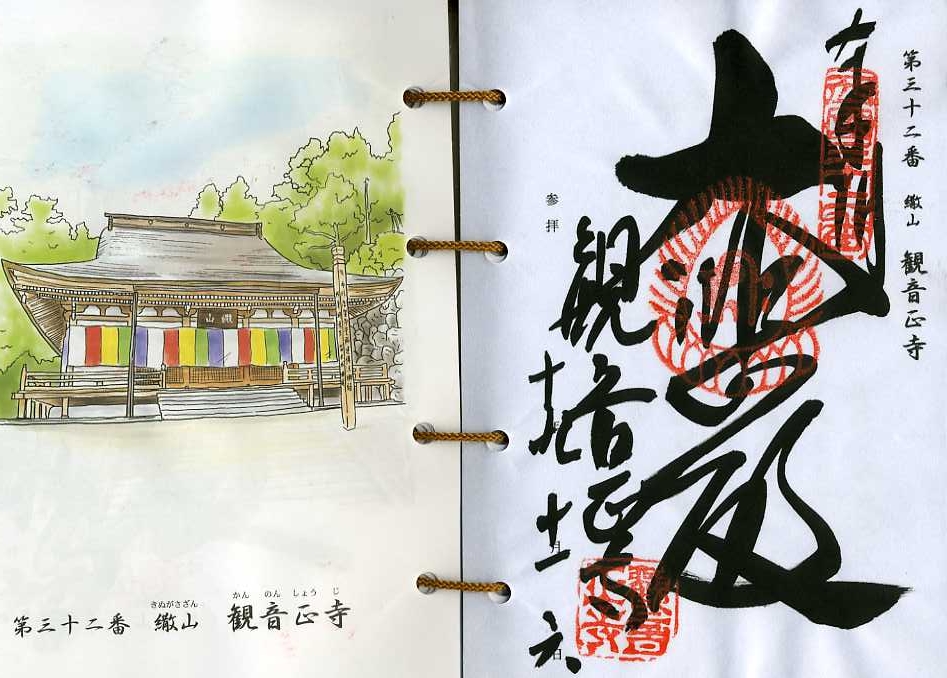 きぬがさざん かんのんしょうじ
第三十二番 繖山 観音正寺
第三十二番 繖山 観音正寺
奉拝
大悲殿
観音正寺
参拝
十一月六日